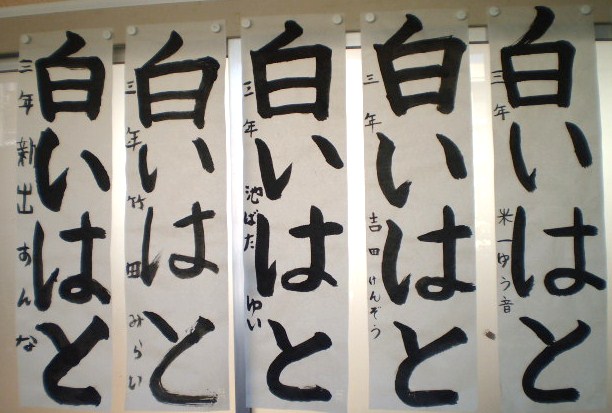 白いはと
三年 米一ゆう音
白いはと
三年 吉田けんぞう
白いはと
三年 池ばた ゆい
白いはと
三年 竹田 みらい
白いはと
三年 新出 すんな